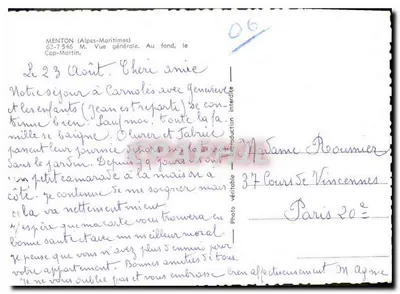 06
MENTON (Alpes-Maritimes)
63-7546 M. Vue générale. Au fond, le
Cap-Martin.
Le 23 Août. Chère amie
Notre séjour à Carnolès avec Geneviève
et les enfants (Jean est reparti) se con-
tinue bien. Sauf moi, toute la fa-
mille se baigne. Olivier et Fabrice
passent leur journée
dans le jardin. Depuis 9 jours
un petit camarade de la maison à
côté. Je continue de me soigner mais
cela va nettement mieux
J'espère que ma carte vous trouvera en
bonne santé et avec un meilleur moral
Je pense que vous n'avez plus d'ennuis pour
votre appartement. Bonnes amitiés de tous
Je ne vous oublie pas et vous embrasse bien affectueusement M
Photo véritable reproduction interdite
Madame Roumier
37 Cours de Vincennes
Paris 20e